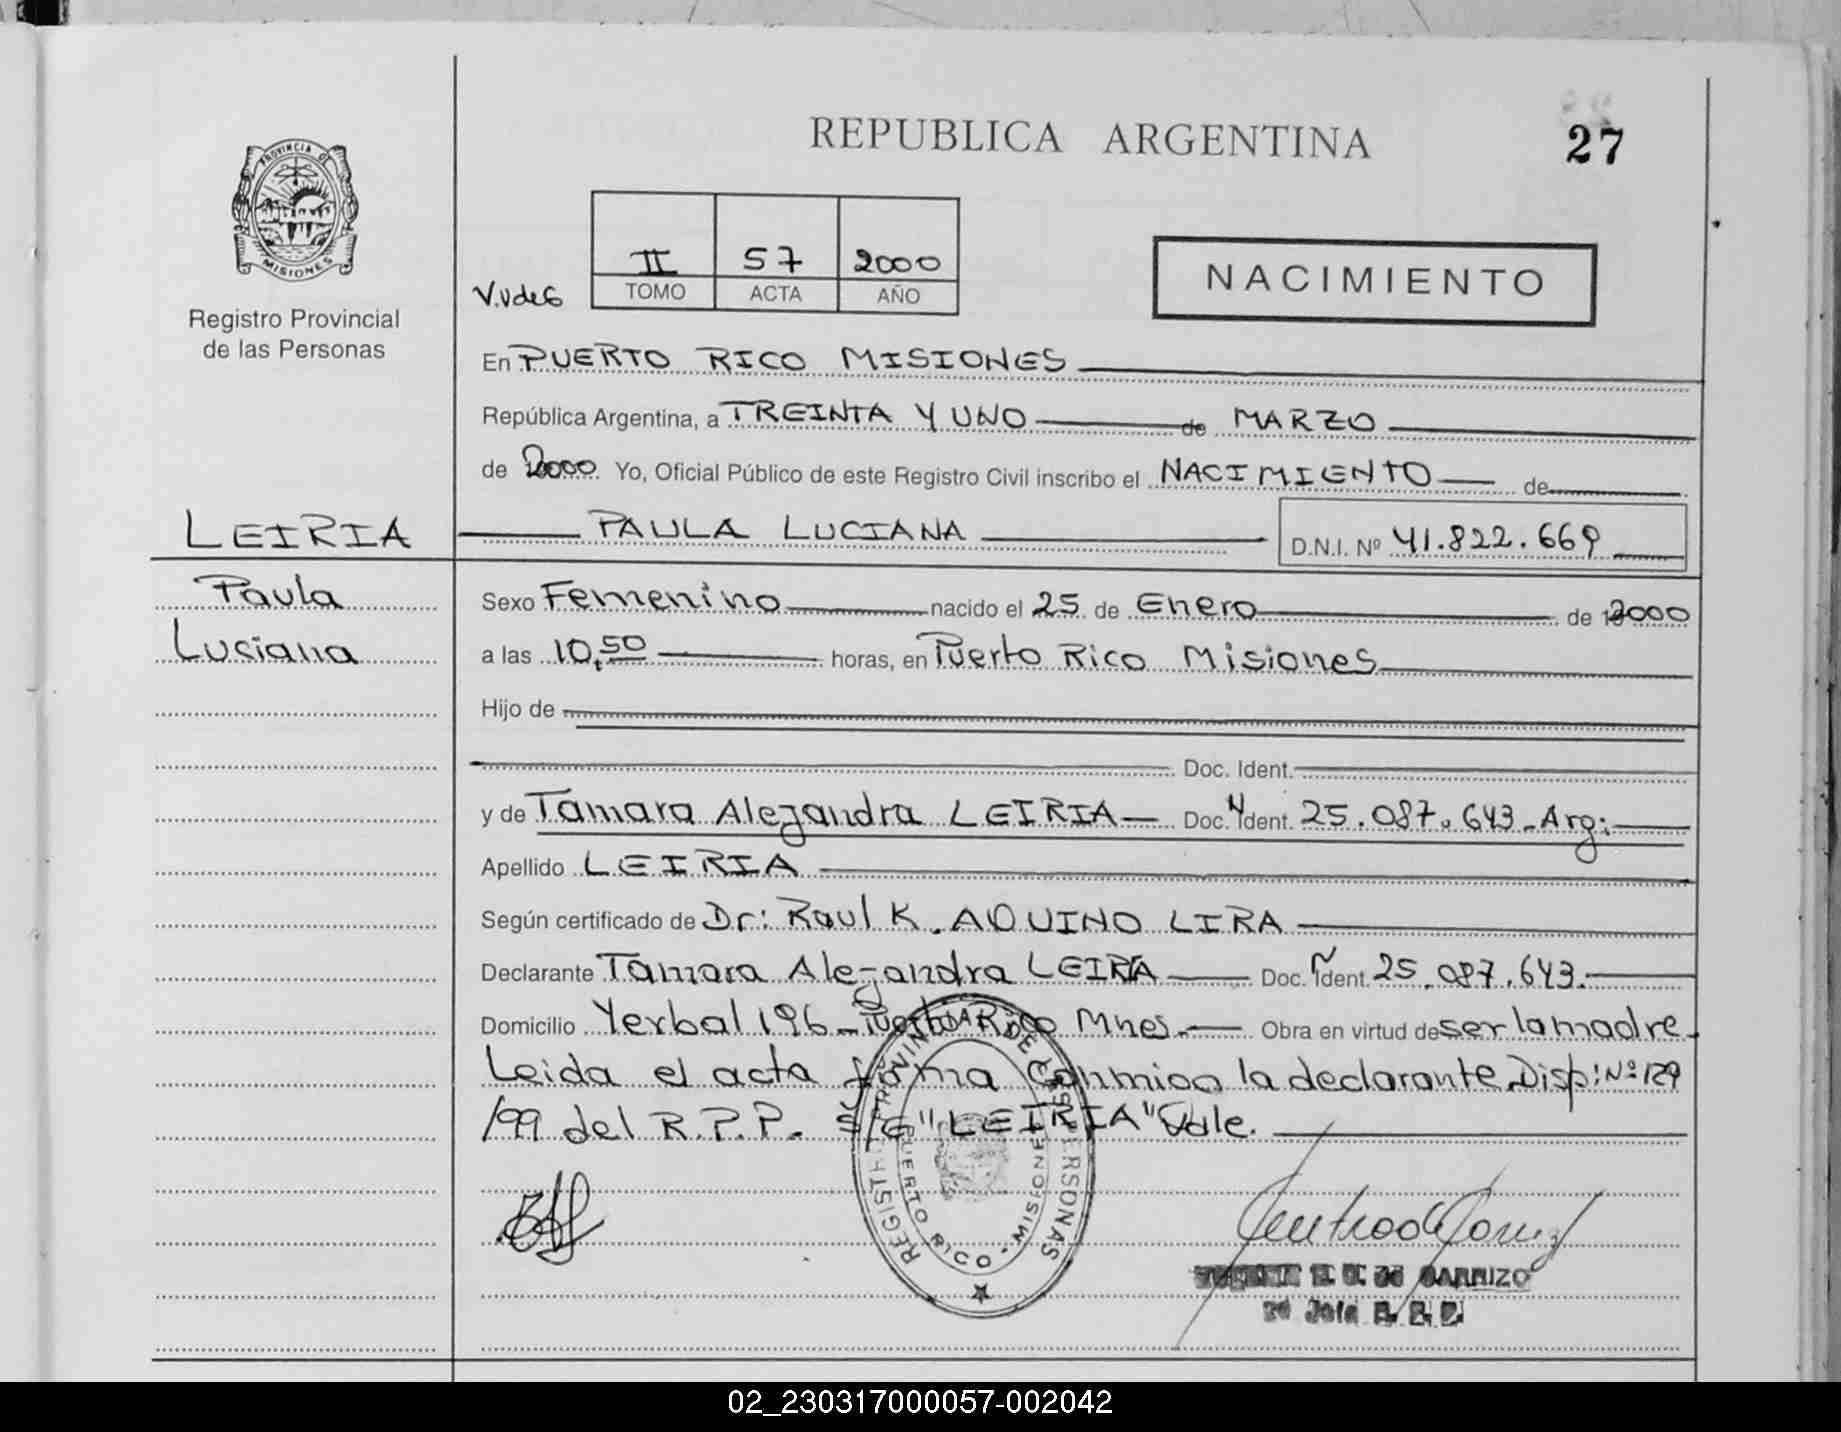 REPUBLICA ARGENTINA
27
PROVINCIA DE
MISIONES
Registro Provincial
de las Personas
II 57 2000
TOMO ACTA AÑO
NACIMIENTO
En PUERTO RICO MISIONES
República Argentina, a TREINTA Y UNO de MARZO
de 2000 Yo, Oficial Público de este Registro Civil inscribo el NACIMIENTO de
LEIRIA
PAULA LUCIANA D.N.I. Nº 41.822.669
Paula
Luciana
Sexo Femenino nacido el 25 de Enero de 2000
a las 10,50 horas, en Puerto Rico Misiones
Hijo de
Doc. Ident.
y de Tamara Alejandra LEIRIA Doc. Ident. 25.087.643 - Arg:
Apellido LEIRIA
Según certificado de Dr: Raul K. AQUINO LIRA
Declarante Tamara Alejandra LEIRIA Doc. Ident. 25.087.643.
Domicilio Yerbal 196 - Puerto Rico Mnes. Obra en virtud de ser la madre
Leida el acta firma Conmigo la declarante. Disp: Nº 129
/99 del R.P.P. S/G "LEIRIA" Vale.
REGISTRO PROVINCIAL DE LAS PERSONAS
PUERTO RICO - MISIONES
DE CARRIZO
02_230317000057-002042